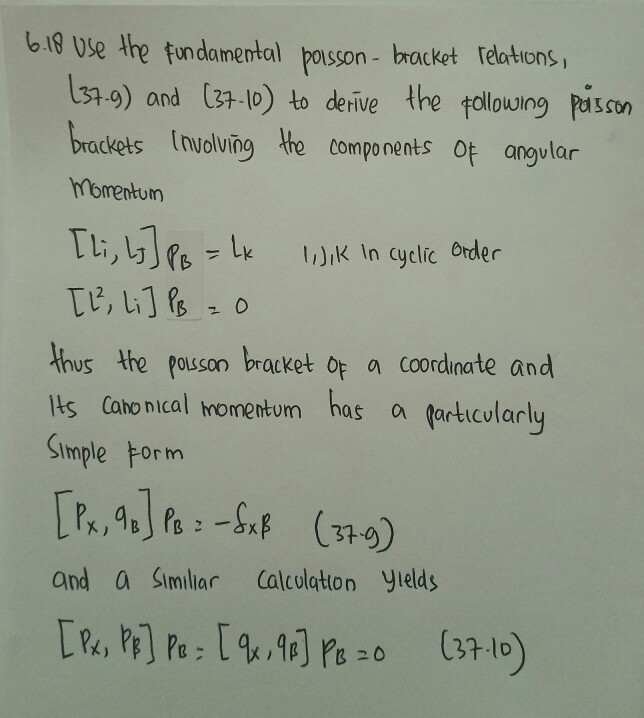 6.18 Use the fundamental poisson - bracket relations,
(37-9) and (37-10) to derive the following poisson
brackets involving the components of angular
momentum
[Li, LJ] PB = Lk I,J,K in cyclic order
[L², Li] PB = 0
thus the poisson bracket of a coordinate and
its canonical momentum has a particularly
simple form
[Px, qB] PB = -δxβ (37-9)
and a similiar calculation yields
[Px, Pβ] PB = [qx, qβ] PB = 0 (37-10)